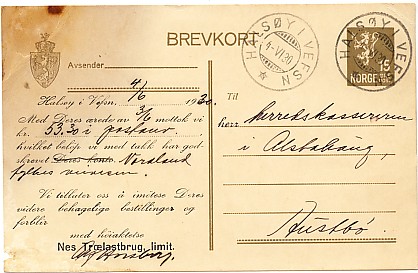 BREVKORT
Avsender
HALSØY I VEFSN
4-VI.30
HALSØY I VEFSN
15
NORGE
4/6
Halsøy i Vefsn, 1930.
Med Deres ærede av 3/6 mottok vi
kr. 53.30 i postanv.
hvilket beløp vi med takk har god-
skrevet Deres konto Nordland
fylkes
Vi tillater oss å imøtese Deres
videre behagelige bestillinger og
forblir
med høiaktelse
Nes Trælastbrug, limit.
Til
herr Herredskassereren
i Alstahaug,
Austbø